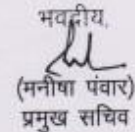 भवदीय,
(मनीषा पंवार)
प्रमुख सचिव